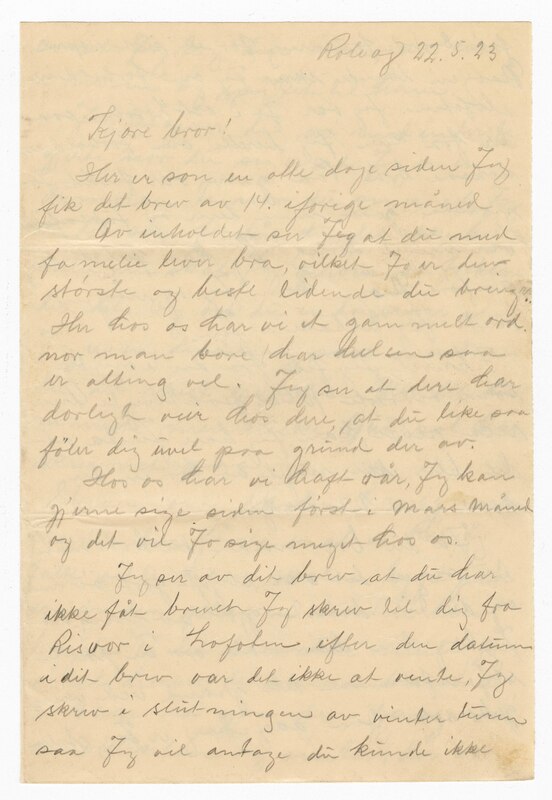 Rolvag 22.5.23
Kjære bror!
Her er son en otte dage siden Jeg
fik dit brev av 14. iforige måned
Av inholdet ser Jeg at du med
famelie lever bra, vilket Jo er den
störste og beste tidende du bringer.
Her hos os har vi et gammelt ord
nor man bare har helsen saa
er alting vel. Jeg ser at dere har
dorligt veir hos dere, at du like saa
föler dig uvel paa grund der av.
Hos os har vi haft vår, Jeg kan
gjerne sige siden först i Mars Måned
og det vil Jo sige meget hos os.
Jeg ser av dit brev at du har
ikke fåt brevet Jeg skrev til dig fra
Risvær i Lofoten, efter den datum
i dit brev var det ikke at vente, Jeg
skrev i slutningen av vinter turen
saa Jeg vil antage du kunde ikke